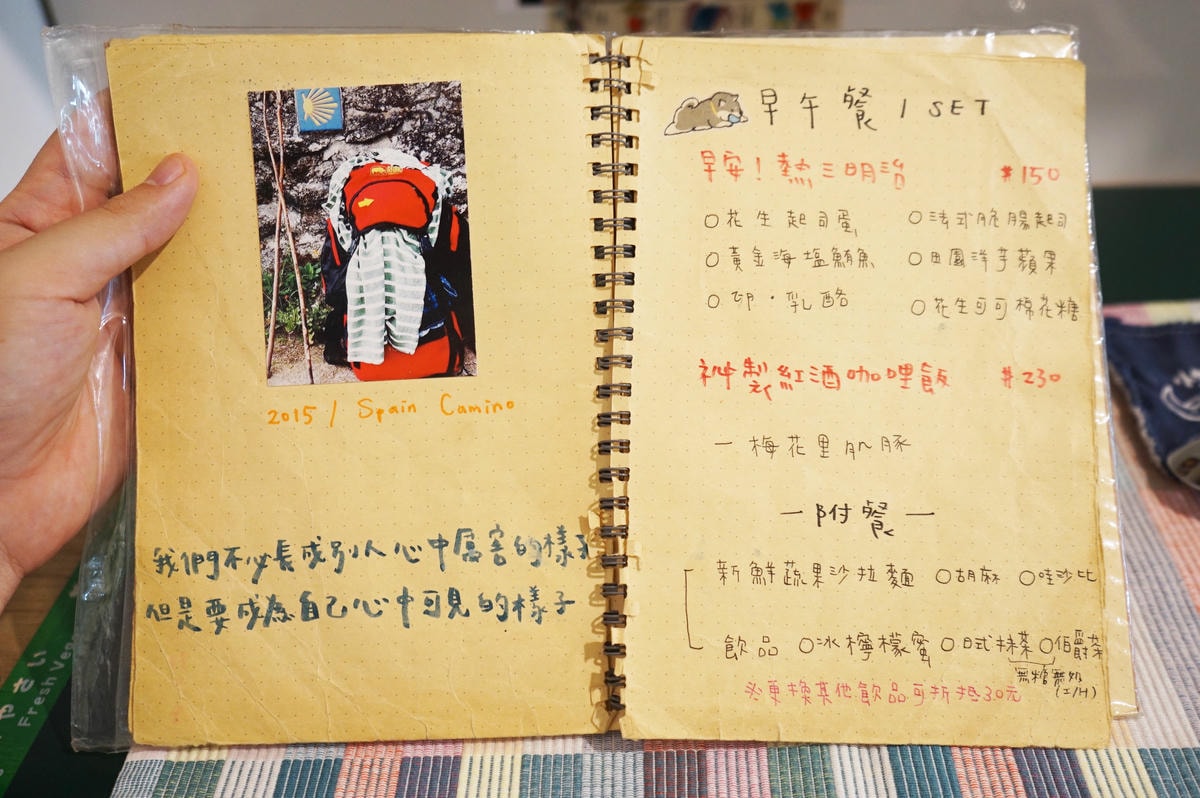 2015 / Spain Camino
我們不必長成別人心中厲害的樣子
但是要成為自己心中可見的樣子
早午餐 / SET
早安！熱三明治 #150
○花生起司蛋 ○法式脆腸起司
○黃金海塩鮪魚 ○田園洋芋蘋果
○卬・乳酪 ○花生可可棉花糖
神製紅酒咖哩飯 #230
一梅花里肌豚
一附餐一
新鮮蔬果沙拉麵 ○胡麻 ○哇沙比
飲品 ○冰檸檬蜜 ○日式抹茶 ○伯爵茶
無糖無奶
(I/H)
※更換其他飲品可折抵30元
Fresh Veg